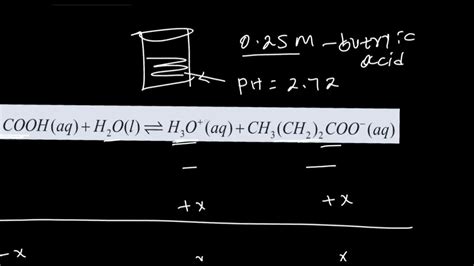 0.25M - butyric
acid
pH = 2.72
COOH(aq) + H₂O(l) ⇌ H₃O⁺(aq) + CH₃(CH₂)₂COO⁻(aq)
— —
+x +x
-x x x